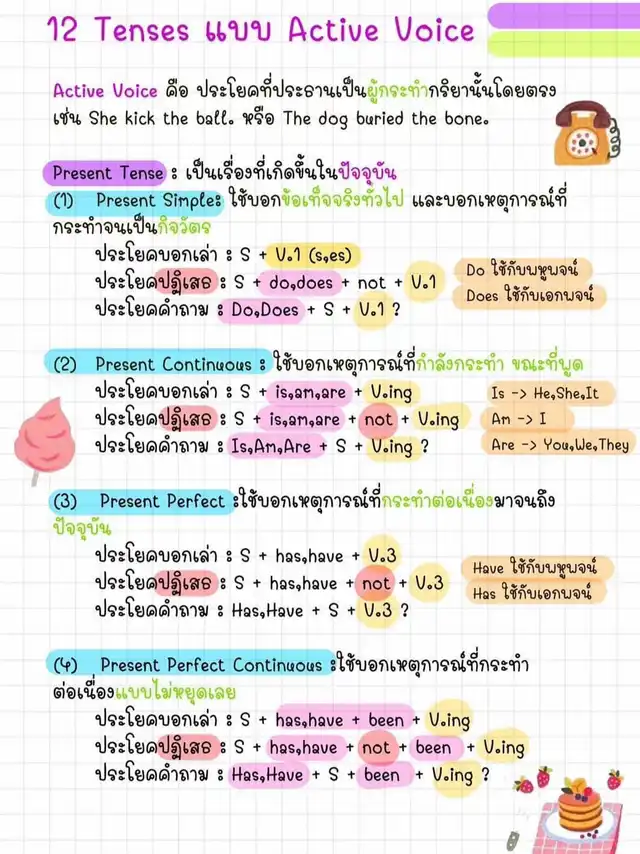 12 Tenses แบบ Active Voice
Active Voice คือ ประโยคที่ประธานเป็นผู้กระทำกริยานั้นโดยตรง
เช่น She kick the ball. หรือ The dog buried the bone.
Present Tense : เป็นเรื่องที่เกิดขึ้นในปัจจุบัน
(1) Present Simple: ใช้บอกข้อเท็จจริงทั่วไป และบอกเหตุการณ์ที่
กระทำจนเป็นกิจวัตร
ประโยคบอกเล่า : S + V.1 (s,es)
ประโยคปฏิเสธ : S + do,does + not + V.1
ประโยคคำถาม : Do,Does + S + V.1 ?
Do ใช้กับพหูพจน์
Does ใช้กับเอกพจน์
(2) Present Continuous : ใช้บอกเหตุการณ์ที่กำลังกระทำ ขณะที่พูด
ประโยคบอกเล่า : S + is,am,are + V.ing
ประโยคปฏิเสธ : S + is,am,are + not + V.ing
ประโยคคำถาม : Is,Am,Are + S + V.ing ?
Is -> He,She,It
Am -> I
Are -> You,We,They
(3) Present Perfect :ใช้บอกเหตุการณ์ที่กระทำต่อเนื่องมาจนถึง
ปัจจุบัน
ประโยคบอกเล่า : S + has,have + V.3
ประโยคปฏิเสธ : S + has,have + not + V.3
ประโยคคำถาม : Has,Have + S + V.3 ?
Have ใช้กับพหูพจน์
Has ใช้กับเอกพจน์
(4) Present Perfect Continuous :ใช้บอกเหตุการณ์ที่กระทำ
ต่อเนื่องแบบไม่หยุดเลย
ประโยคบอกเล่า : S + has,have + been + V.ing
ประโยคปฏิเสธ : S + has,have + not + been + V.ing
ประโยคคำถาม : Has,Have + S + been + V.ing ?